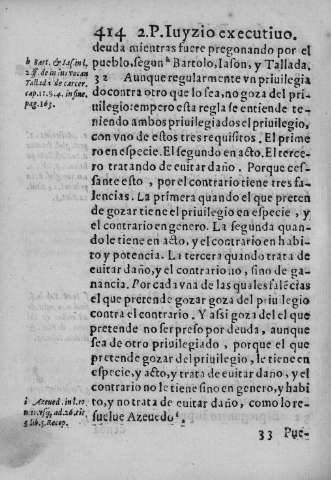 414 2.P. Iuyzio executiuo.
h Bart. & Ias. in l.
2. ff. de in ius vocan
Tallada de carcer,
cap. 11. §. 4. in fine
pag. 163.
deuda mientras fuere pregonando por el
pueblo, segun ʰ Bartolo, Iason, y Tallada.
32 Aunque regularmente vn priuilegia
do contra otro que lo sea, no goza del pri-
uilegio: empero esta regla se entiende te-
niendo ambos priuilegiados el priuilegio,
con vno de estos tres requisitos. El prime
ro en especie. El segundo en acto. El terce-
ro tratando de euitar daño. Porque ces-
sante esto, por el contrario tiene tres fa-
lencias. La primera quando el que preten
de gozar tiene el priuilegio en especie, y
el contrario en genero. La segunda quan-
do le tiene en acto, y el contrario en habi-
to y potencia. La tercera quando trata de
euitar daño, y el contrario no, sino de ga-
nancia. Por cada vna de las quales falēcias
el que pretende gozar goza del priuilegio
contra el contrario. Y assi goza del el que
pretende no ser preso por deuda, aunque
sea de otro priuilegiado, porque el que
pretende gozar del priuilegio, le tiene en
especie, y acto, y trata de euitar daño, y el
contrario no le tiene sino en genero, y habi
to, y no trata de euitar daño, como lo re-
suelue Azeuedo ⁱ.
i Azeued. in l. 10.
lib. 5. Recop.
33 Pue-